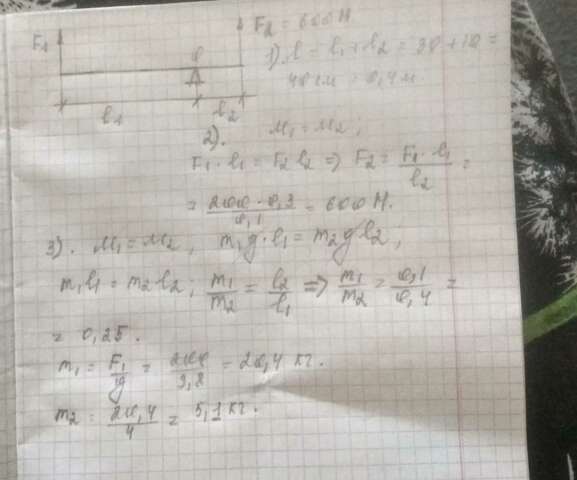 F₁ F₂ = 600 Н
0 1). l = l₁ + l₂ = 30 + 10 =
40 см = 0,4 м.
l₁ l₂
2). M₁ = M₂ ;
F₁ · l₁ = F₂ l₂ => F₂ = F₁ · l₁ / l₂ =
= 200 · 0,3 / 0,1 = 600 Н.
3). M₁ = M₂ ; m₁g · l₁ = m₂g l₂ ;
m₁l₁ = m₂l₂ ; m₁/m₂ = l₂/l₁ => m₁/m₂ = 0,1/0,4 =
= 0,25.
m₁ = F₁/g = 200/9,8 = 20,4 кг.
m₂ = 20,4/4 = 5,1 кг.